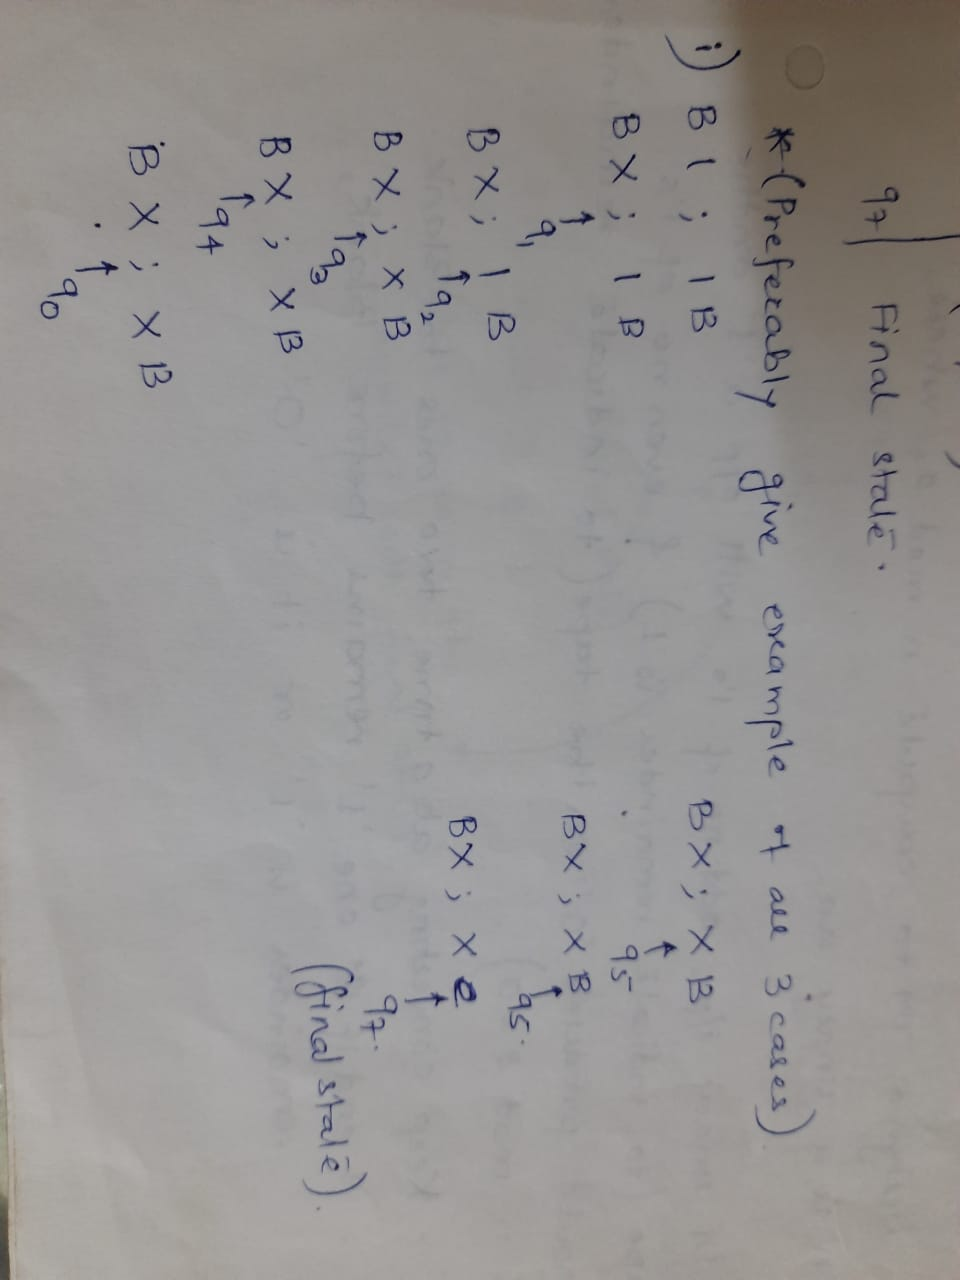 q7 | Final state.
*(Preferably give example of all 3 cases)
i) B 1 ; 1 B
B X ; 1 B
↑
q1
B X ; 1 B
↑ q2
B X ; X B
↑ q3
B X ; X B
↑ q4
B X ; X B
↑ q0
B X ; X B
↑
q5
B X ; X B
↑
q5.
B X ; X e
↑
q7.
(final state).